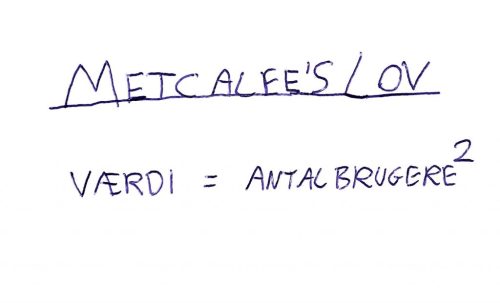 METCALFE'S LOV
VÆRDI = ANTAL BRUGERE²